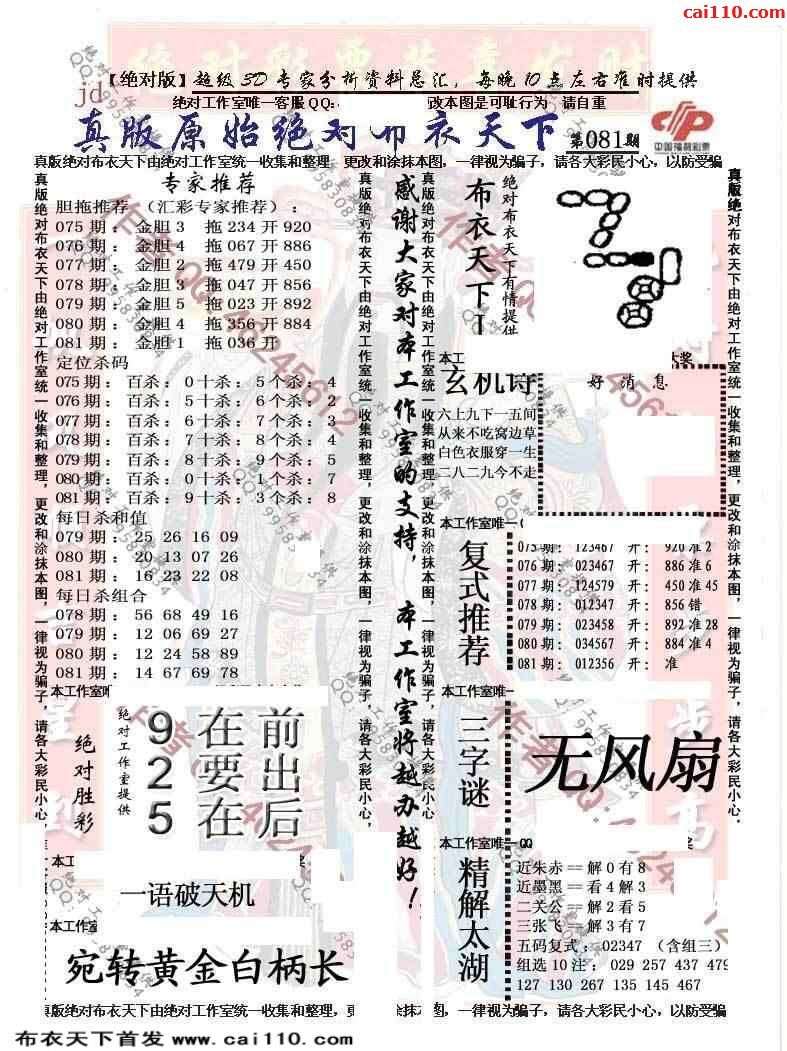 cai110.com
【绝对版】超级3D专家分析资料总汇，每晚10点左右准时提供
jd
绝对工作室唯一客服QQ: 改本图是可耻行为 请自重
真版原始绝对布衣天下 第081期
中国福利彩票
真版绝对布衣天下由绝对工作室统一收集和整理 更改和涂抹本图，一律视为骗子，请各大彩民小心，以防受骗
真版绝对布衣天下由绝对工作室统一收集和整理，更改和涂抹本图，一律视为骗子，请各大彩民小心，
专家推荐
胆拖推荐 （汇彩专家推荐）：
075期：金胆3 拖234开920
076期：金胆4 拖067开886
077期：金胆2 拖479开450
078期：金胆3 拖047开856
079期：金胆5 拖023开892
080期：金胆4 拖356开884
081期：金胆1 拖036开
定位杀码
075期：百杀：0十杀：5个杀：4
076期：百杀：5十杀：6个杀：2
077期：百杀：6十杀：7个杀：3
078期：百杀：7十杀：8个杀：4
079期：百杀：8十杀：9个杀：5
080期：百杀：0十杀：1个杀：7
081期：百杀：9十杀：3个杀：8
每日杀和值
079期：25 26 16 09
080期：20 13 07 26
081期：16 23 22 08
每日杀组合
078期：56 68 49 16
079期：12 06 69 27
080期：12 24 58 89
081期：14 67 69 78
本工作室唯
绝对胜彩
绝对工作室提供
9在前
2要出
5在后
本工
奖
一语破天机
本工作室
宛转黄金白柄长
真版绝对布衣天下由绝对工作室统一收集和整理，更改和涂抹本图，一律视为骗子，请各大彩民小心，
感谢大家对本工作室的支持，本工作室将越办越好！
真版绝对布衣天下由绝对工作室统一收集和整理，更改和涂抹本图，一律视为骗子，请各大彩民小心，
布衣天下
绝对布衣天下有情提供
本工
大奖
玄机诗
六上九下一五间
从来不吃窝边草
白色衣服穿一生
二八二九今不走
好消息
本工作室唯一
复式推荐
075期： 123467 开： 920准2
076期： 023467 开： 886准6
077期： 124579 开： 450准45
078期： 012347 开： 856错
079期： 023458 开： 892准28
080期： 034567 开： 884准4
081期： 012356 开： 准
本工作室唯一
三字谜
无风扇
本工作室唯一QQ
奖
精解太湖
近朱赤==解0有8
近墨黑==看4解3
二天公==解2看5
三张飞==解3有7
五码复式：02347 （含组三）
组选10注：029 257 437 479
127 130 267 135 145 467
真版绝对布衣天下由绝对工作室统一收集和整理，更改和涂抹本图，一律视为骗子，请各大彩民小心，
真版绝对布衣天下由绝对工作室统一收集和整理，更
涂抹本图，一律视为骗子，请各大彩民小心，以防受骗
布衣天下首发 www.cai110.com